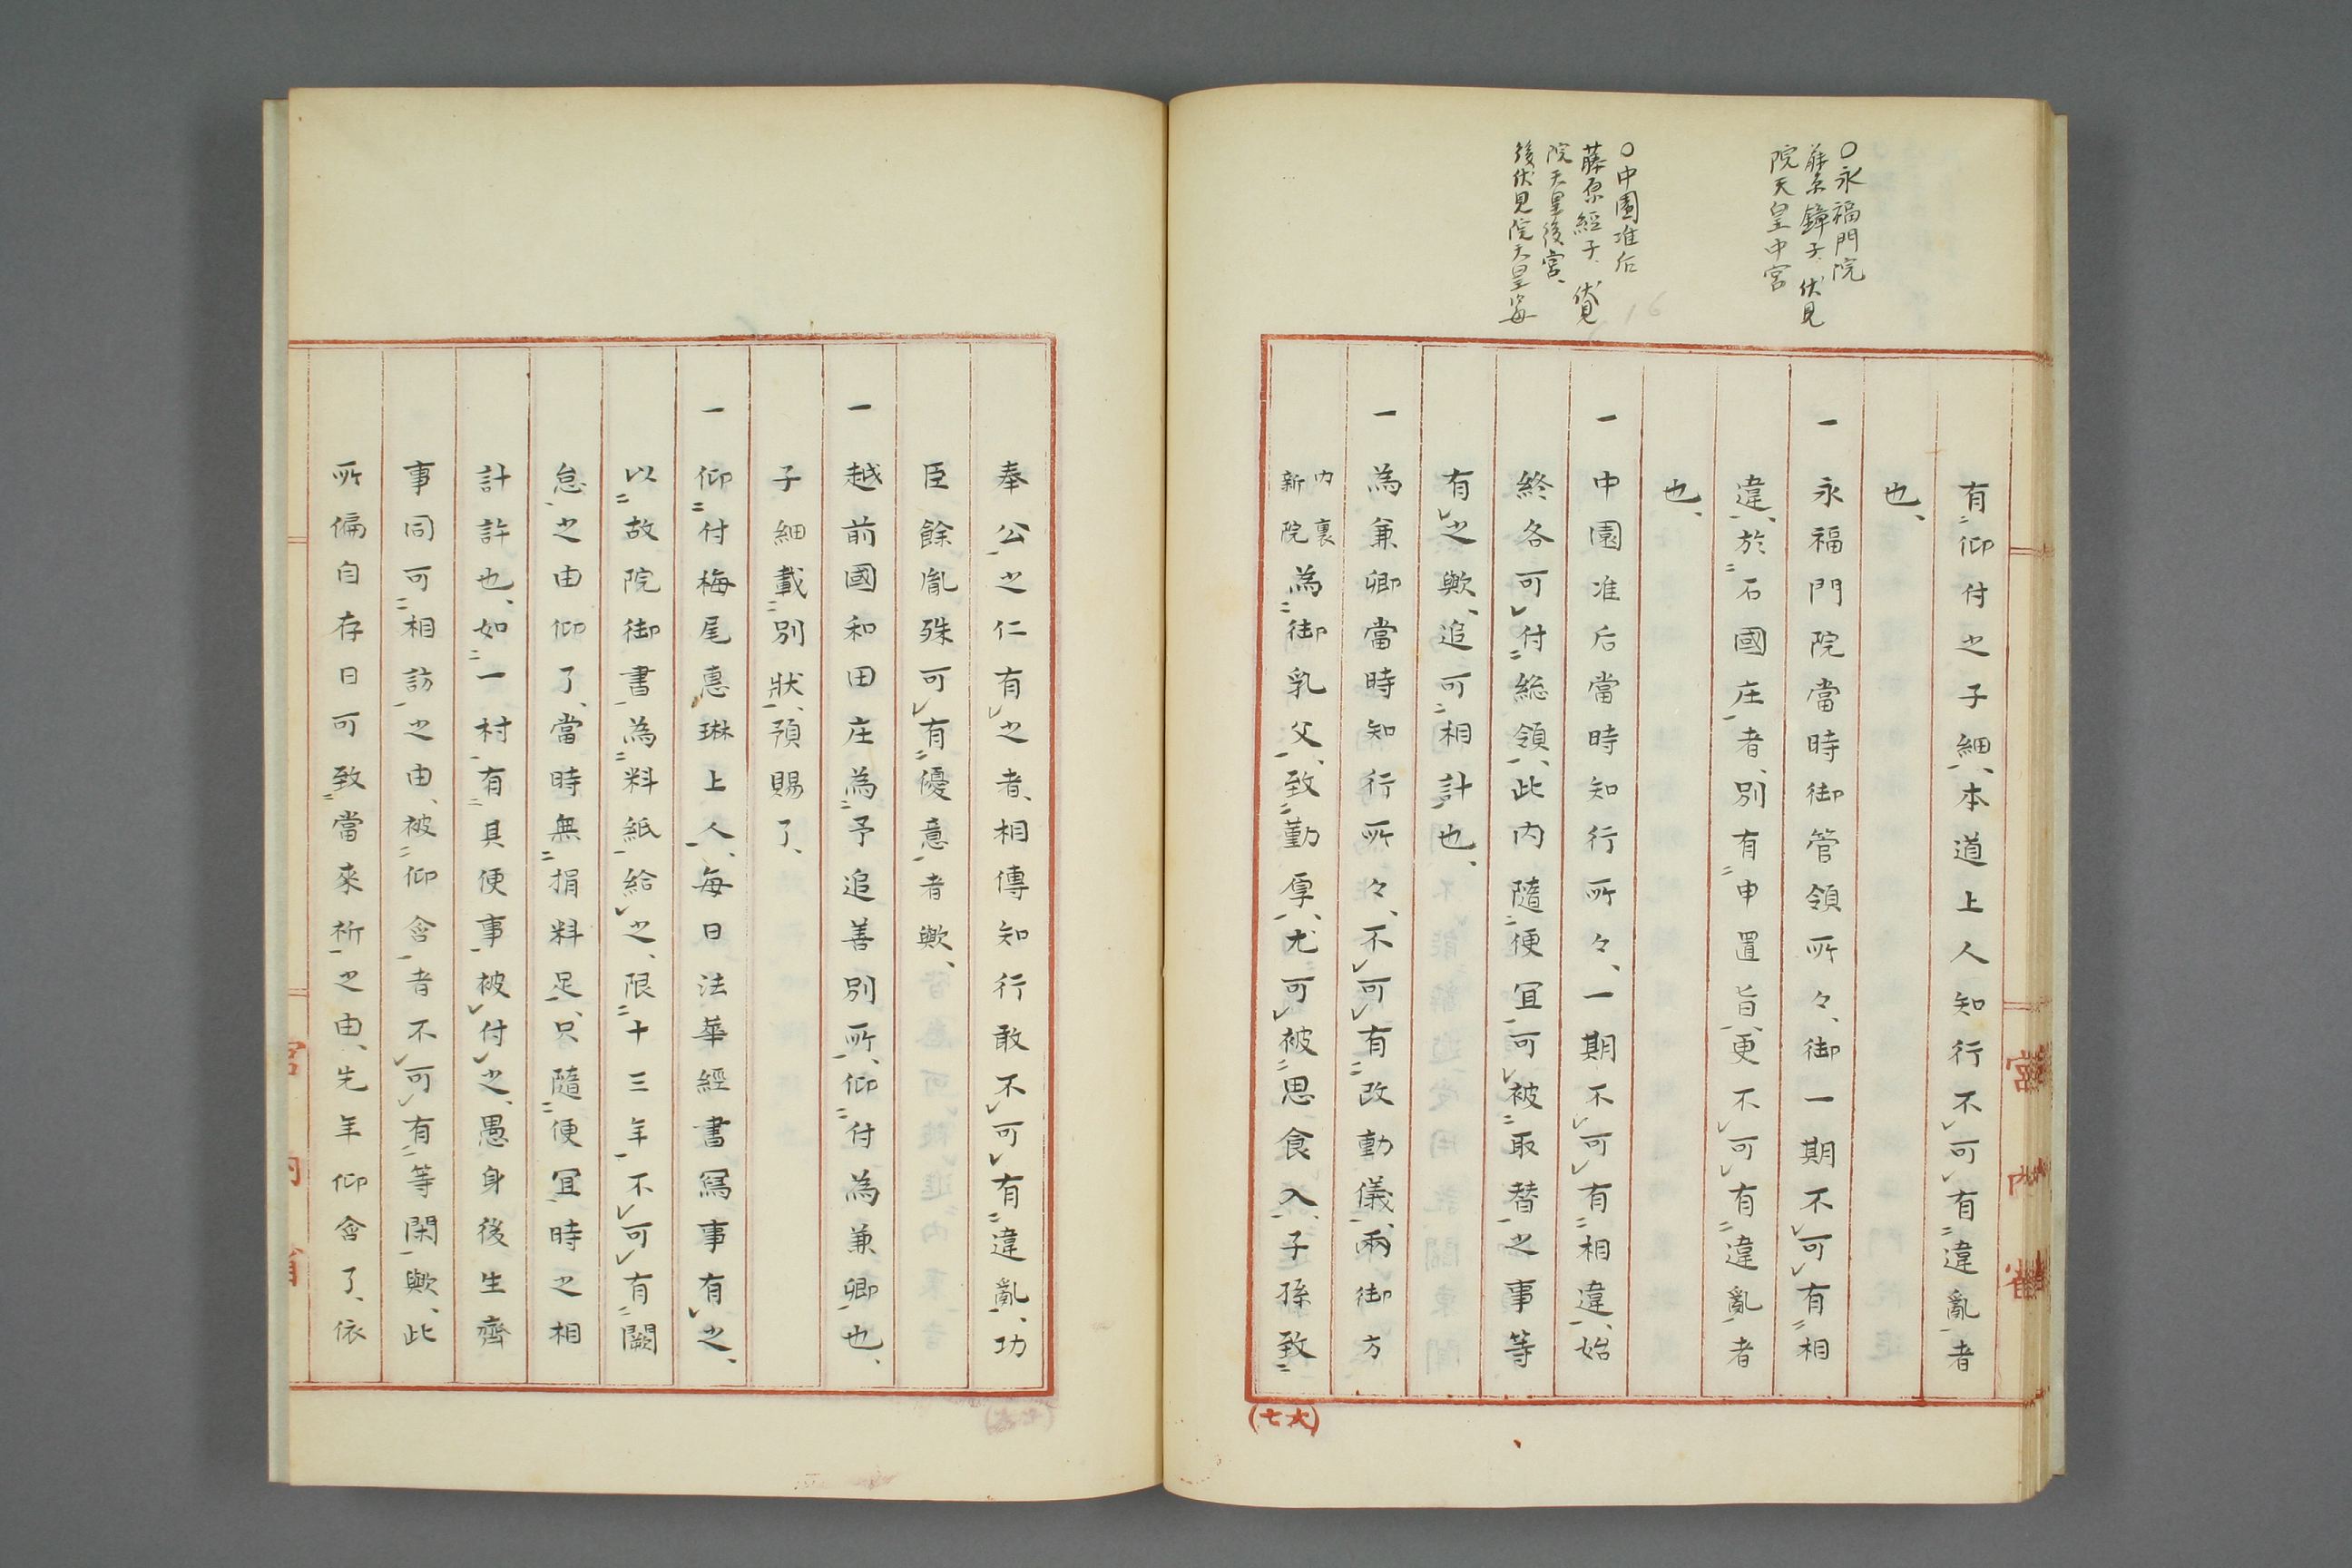 〇永福門院
藤原鏱子、伏見
院天皇中宮
〇中園准后
藤原經子、伏見
院天皇後宮、
後伏見院天皇母
有仰付之子細、本道上人知行不可有違亂者
也、
一永福門院當時御管領所々、御一期不可有相
違、於石國庄者、別有申置旨、更不可有違亂者
也、
一中園准后當時知行所々、一期不可有相違、始
終各可付総領、此内隨便宜可被取替之事等
有之歟、追可相計也、
一為兼卿當時知行所々、不可有改動儀、兩御方
内裏
新院
為御乳父、致勤厚、尤可被思食入、子孫致
(七六)
宮内省
奉公之仁有之者、相傳知行敢不可有違亂、功
臣餘胤殊可有優意者歟、
一越前國和田庄為予追善別所、仰付為兼卿也、
子細載別狀、預賜了、
一仰付梅尾惠琳上人、每日法華經書寫事有之、
以故院御書為料紙給之、限十三年不可有闕
怠之由仰了、當時無捐料足、只隨便宜時之相
計許也、如一村有其便事被付之、愚身後生齊
事同可相訪之由、被仰含者不可有等閑歟、此
所偏自存日可致當來祈之由、先年仰含了、依
宮内省